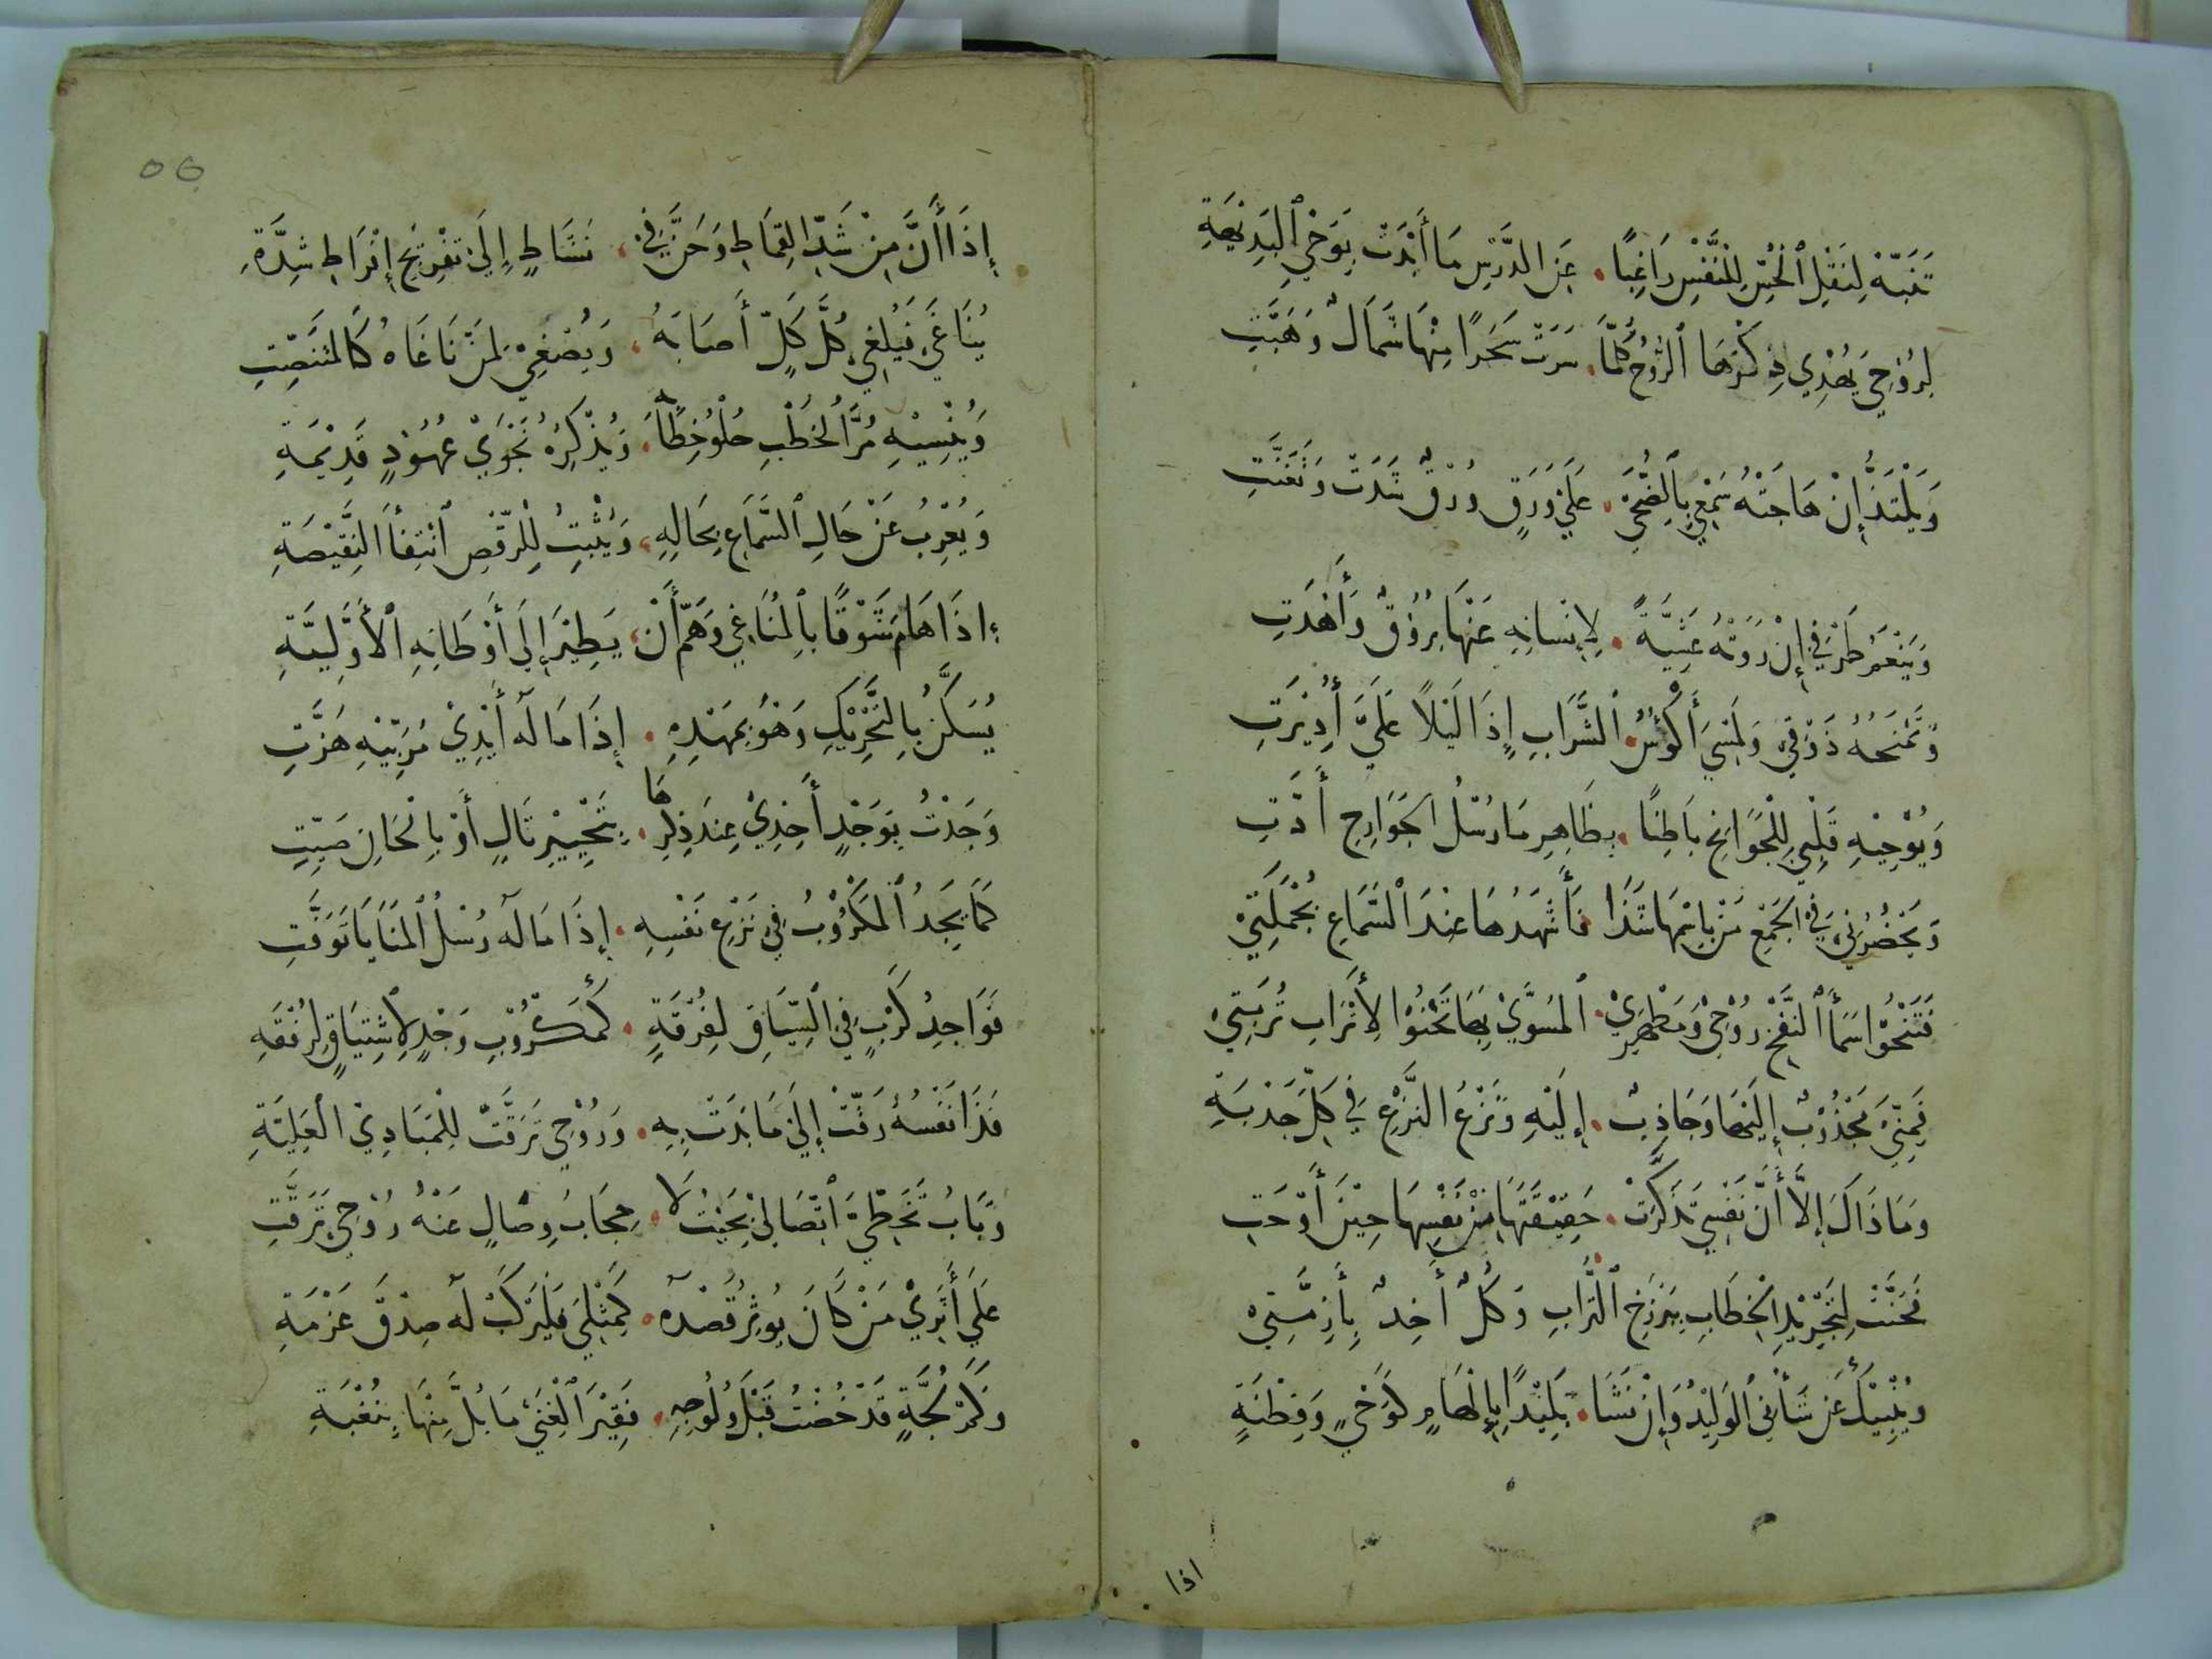 تَنَبَّهْ لِنَقْلِ ٱلْحِسِّ لِلنَّفْسِ رَاغِبًا ۰ عَنِ الدَّرْسِ مَا أَبْدَتْ بِوَحْيِ ٱلْبَدِيْهَةِ
لِرُوْحِيَ يُهْدِي ذِكْرَهَا ٱلرَّوْحُ كُلَّمَا ۰ سَرَتْ سَحَرًا مِنْهَا شَمَالٌ وَهَبَّتِ
وَيَلْتَذُّ إِنْ هَاجَتْهُ سَمْعِيْ بِالضُّحَىْ ۰ عَلَىْ وَرَقٍ وُرْقٌ شَدَتْ وَتَغَنَّتِ
وَيَنْعَمُ طَرْفِيْ إِنْ رَوَتْهُ عَشِيَّةً ۰ لِإِنْسَانِهِ عَنْهَا بُرُوْقٌ وَأَهْدَتِ
وَيَمْنَحُهُ ذَوْقِيْ وَلَمْسِيَ أَكْؤُسُ ۰ ٱلشَّرَابِ إِذَا لَيْلًا عَلَيَّ أُدِيْرَتِ
وَيُوْحِيْهِ قَلْبِيْ لِلْجَوَانِحِ بَاطِنًا ۰ بِظَاهِرِ مَا رُسْلُ الجَوَارِحِ أَدَّتِ
وَيَحْضُرُنِيْ فِيْ الجَمْعِ مَنْ بِاسْمِهَا شَذَا ۰ فَأَشْهَدُهَا عِنْدَ ٱلسَّمَاعِ بِجُمْلَتِيْ
فَتَنْحُوْا سَمَأَ ٱلنَّفْخِ رُوْحِيْ وَمَظْهَرِيْ ۰ ٱلمُسَوَّىْ بِهَا تَحْنُوْا لِأَتْرَابِ تُرْبَتِيْ
فَمِنِّيَ مَجْذُوْبٌ إِلَيْهَا وَجَاذِبٌ ۰ إِلَيْهِ وَنَزْعُ النَّزْعِ فِيْ كِلِّ جَذْبَةِ
وَمَا ذَاكَ إِلَّا أَنَّ نَفْسِيْ تَذَكَّرَتْ ۰ حَقِيْقَتَهَا مِنْ نَفْسِهَا حِيْنَ أَوْحَتِ
فَحَنَّتْ لِتَجْرِيْدِ الخِطَابِ بِبَرْزَخِ ٱلتُّرَابِ وَكُلٌّ أَخِذٌ بِأَزِمَّتِيْ
وَيُنْبِيْكَ عَنْ شَأْنِيْ ٱلوَلِيْدُ وَإِنْ نَشَا ۰ بَلِيْدًا بِإِلْهَامٍ كَوَحْيٍ وَفِطْنَةٍ
اذا
٥٥
إِذَا أَنَّ مِنْ شَدِّ القِمَاطِ وَحَنَّ فِيْ ۰ نَشَاطٍ إِلَىْ تَفْرِيْجِ إِفْرَاطِ شِدَّةِ
يُنَاغَىْ فَيُلْغِيْ كُلَّ كَلٍّ أَصَابَهُ ۰ وَيُصْغِيْ لِمَنْ نَاغَاهُ كَالمُتَنَصِّتِ
وَيُنْسِيْهِ مُرَّ الخَطْبِ حُلْوُ خِطَابِهِ ۰ وَيُذْكِرُهُ نَجْوَىْ عُهُوْدٍ قَدِيْمَةِ
وَيُعْرِبُ عَنْ حَالِ ٱلسَّمَاعِ بِحَالِهِ ۰ وَيُثْبِتُ لِلْرَّقْصِ ٱنْتِفَأَ النَّقِيْصَةِ
إِذَا هَامَ شَوْقًا بِالمُنَاغِيْ وَهَمَّ أَنْ ۰ يَطِيْرَ إِلَىْ أَوْطَانِهِ ٱلأَوَّلِيَّةِ
يُسَكَّنُ بِالتَّحْرِيْكِ وَهْوَ بِمَهْدِهِ ۰ إِذَا مَا لَهُ أَيْدِيْ مُرَبِّيْهِ هَزَّتِ
وَجَدْتُ بِوَجْدٍ أَخِذِيْ عِنْدَ ذِكْرِهَا ۰ بِتَحْبِيْرِ تَالٍ أَوْ بِالْحَانِ صَيِّتِ
كَمَا يَجِدُ ٱلمَكْرُوْبُ فِيْ نَزْعِ نَفْسِهِ ۰ إِذَا مَا لَهُ رُسْلُ ٱلمَنَايَا تَوَفَّتِ
فَوَاجِدُ كَرْبٍ فِيْ ٱلسِّيَاقِ لِفُرْقَةٍ ۰ كَمَكْرُوْبِ وَجْدٍ لِاشْتِيَاقٍ لِرُفْقَةِ
فَذَا نَفْسُهُ رَقَّتْ إِلَىْ مَا بَدَتْ بِهِ ۰ وَرُوْحِيْ تَرَقَّتْ لِلْمَبَادِيْ العَلِيَّةِ
وَبَابُ تَخَطِّيَّ ٱتِّصَالِيْ بِحَيْثُ لَا ۰ حِجَابَ وِصَالٍ عَنْهُ رُوْحِيْ تَرَقَّتِ
عَلَىْ أَثَرِيْ مَنْ كَانَ يُوْثِرُ قَصْدَهُ ۰ كَمِثْلِيَ فَلْيَرْكَبْ لَهُ صِدْقَ عَزْمَةِ
وَكَمْ لُجَّةٍ قَدْ خُضْتُ قَبْلَ وُلُوْجِهِ ۰ فَقِيْرَ ٱلْغِنَىْ مَا بُلَّ مِنْهَا بِنُغْبَةِ